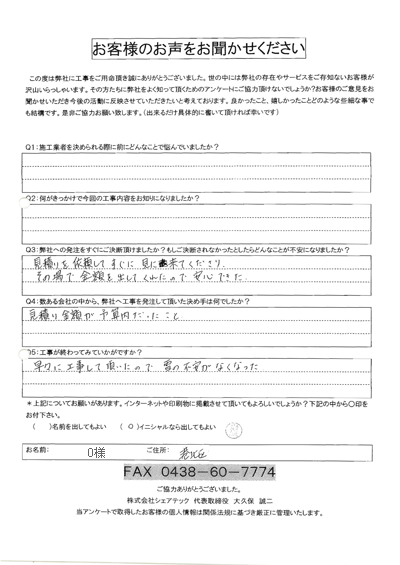 お客様のお声をお聞かせください
この度は弊社に工事をご用命頂き誠にありがとうございました。世の中には弊社の存在やサービスをご存知ないお客様が
沢山いらっしゃいます。その方たちに弊社をよく知って頂くためのアンケートにご協力頂けないでしょうか?お客様のご意見をお
聞かせいただき今後の活動に反映させていただきたいと考えております。良かったこと、嬉しかったことどのような些細な事で
も結構です。是非ご協力お願い致します。(出来るだけ具体的に書いて頂ければ幸いです)
Q1:施工業者を決められる際に前にどんなことで悩んでいましたか?
Q2:何がきっかけで今回の工事内容をお知りになりましたか?
Q3:弊社への発注をすぐにご決断頂けましたか?もしご決断されなかったとしたらどんなことが不安になりましたか?
見積りを依頼してすぐに見に来てくださり
その場で金額を出してくれたので安心できた
Q4:数ある会社の中から、弊社へ工事を発注して頂いた決め手は何でしたか?
見積り金額が予算内だったこと
Q5:工事が終わってみていかがですか?
早々に工事して頂いたので雪の不安がなくなった
*上記についてお願いがあります。インターネットや印刷物に掲載させて頂いてもよろしいでしょうか?下記の中から〇印を
お付下さい。
( )名前を出してもよい (〇)イニシャルなら出してもよい
お名前: O様 ご住所:
FAX 0438-60-7774
ご協力ありがとうございました。
株式会社シェアテック 代表取締役 大久保 誠二
当アンケートで取得したお客様の個人情報は関係法規に基づき厳正に管理いたします。